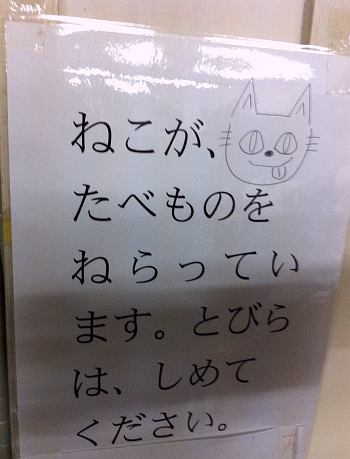 ねこが、
たべものを
ねらってい
ます。とびら
は、しめて
ください。